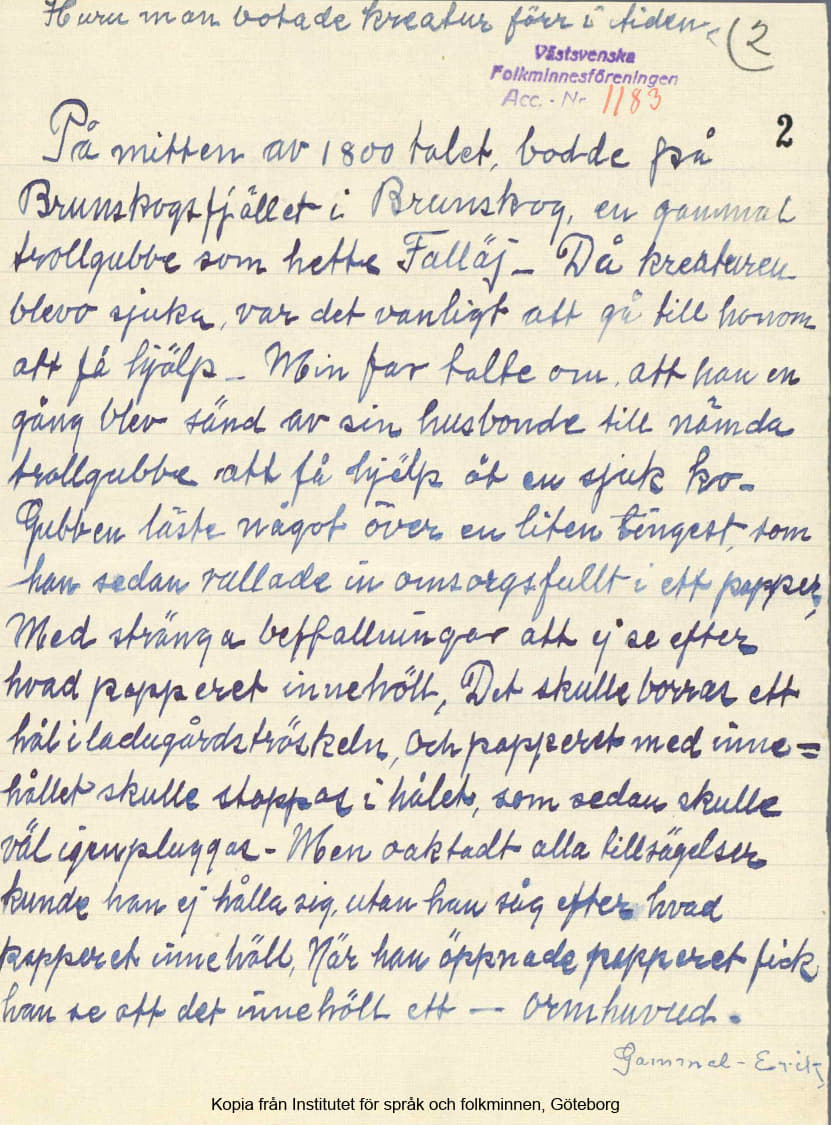 Huru man botade kreatur förr i tiden. (2
Västsvenska
Folkminnesföreningen
Acc. - Nr 1183
2
På mitten av 1800 talet, bodde på
Brunskogsfjället i Brunskog, en gammal
trollgubbe som hette Falläj - Då kreaturen
blevo sjuka, var det vanligt att gå till honom
att få hjälp - Min far talte om, att han en
gång blev sänd av sin husbonde till nämda
trollgubbe att få hjälp åt en sjuk ko -
Gubben läste något över en liten tingest, som
han sedan rullade in omsorgsfullt i ett papper,
Med stränga beffallningar att ej se efter
hvad papperet innehölt, Det skulle borras ett
hål i ladugårdströskeln, och papperet med inne=
hållet skulle stoppas i hålet, som sedan skulle
väl igenpluggas - Men oaktadt alla tillsägelser
kunde han ej hålla sig, utan han såg efter hvad
papperet innehöll, När han öppnade papperet fick
han se att det innehölt ett — ormhuvud.
Gammel-Erik,
Kopia från Institutet för språk och folkminnen, Göteborg